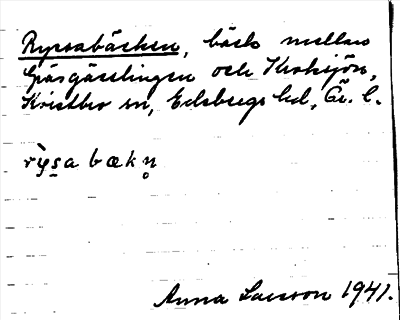 Ryssabäcken, bäck mellan
Gäsgässlingen och Kroksjön,
Kristbg sn, Edsbergs hd, Ör. l.
rỳs̲a bækn̥
Anna Larsson 1941.